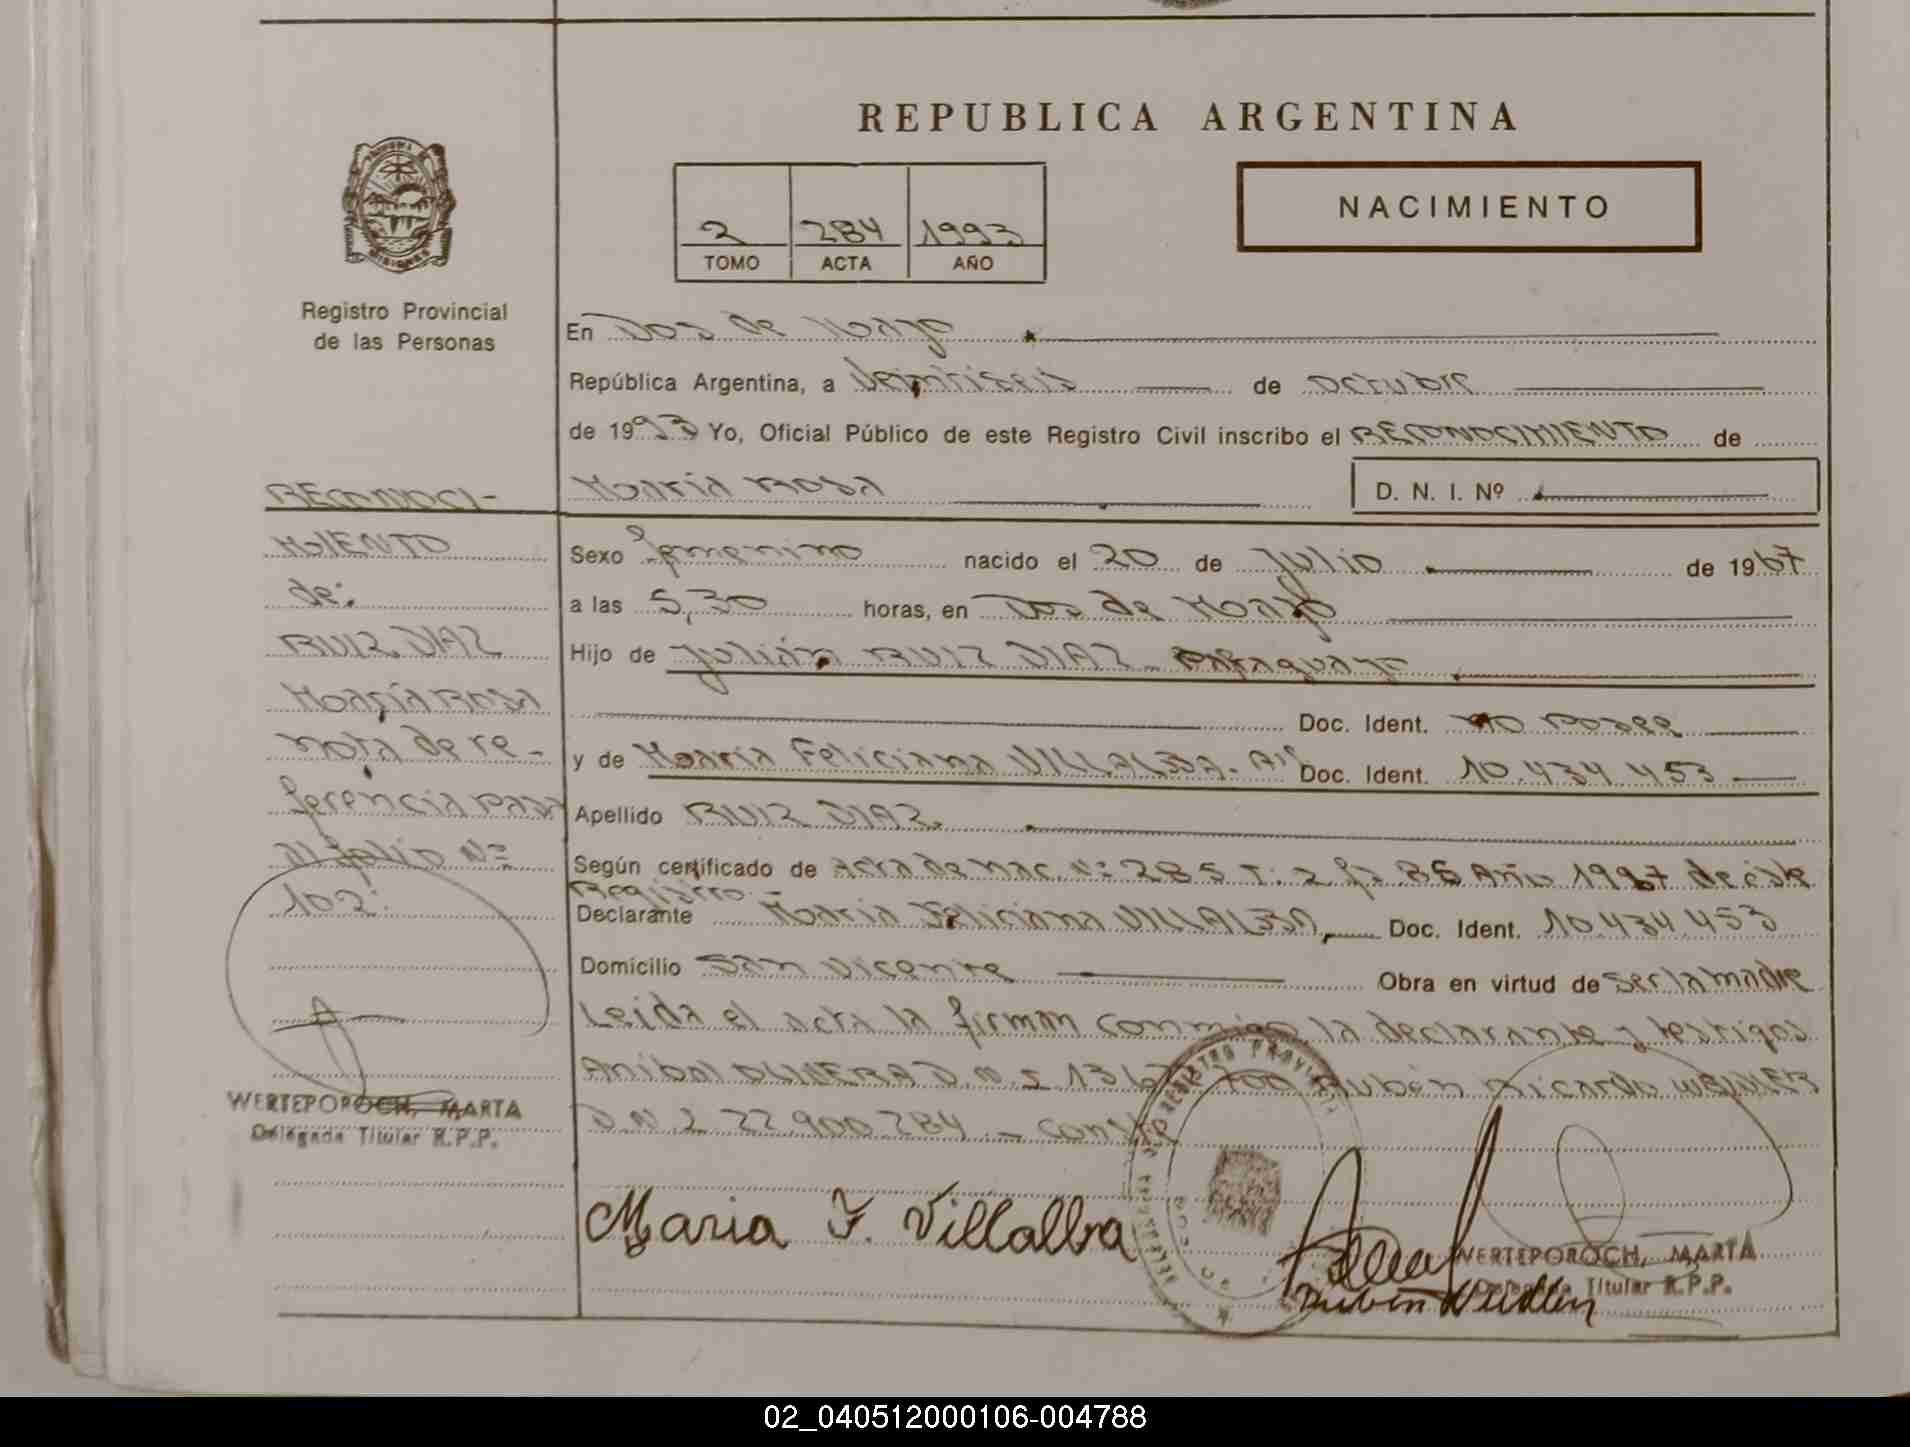 REPUBLICA ARGENTINA
NACIMIENTO
2 284 1993
TOMO ACTA AÑO
Registro Provincial
de las Personas
En Dos de Mayo
República Argentina, a veintiseis de octubre
de 1993 Yo, Oficial Público de este Registro Civil inscribo el RECONOCIMIENTO de
María Rosa D. N. I. Nº
RECONOCI-
MIENTO
de:
RUIZ DIAZ
María Rosa
nota de re-
ferencia pasa
al folio Nº
102.
WERTEPOROCH, MARTA
Delegada Titular R.P.P.
Sexo femenino nacido el 20 de julio de 1967
a las 5,30 horas, en Dos de Mayo
Hijo de Julián RUIZ DIAZ - paraguayo
Doc. Ident. no posee
y de María Feliciana VILLALBA. Doc. Ident. 10.434.453
Apellido RUIZ DIAZ
Según certificado de Acta de Nac. Nº 285 T: 2 fº 86 Año 1987 de este
Registro -
Declarante María Feliciana VILLALBA, Doc. Ident. 10.434.453
Domicilio San Vicente Obra en virtud de ser la madre
Leida el acta la firman conmigo la declarante y testigos
Anibal D.N.I 13 700 Rubén Ricardo
D.N.I 22.900.284 - conste
Maria F. Villalba
WERTEPOROCH, MARTA
Delegada Titular R.P.P.
Ruben
02_040512000106-004788